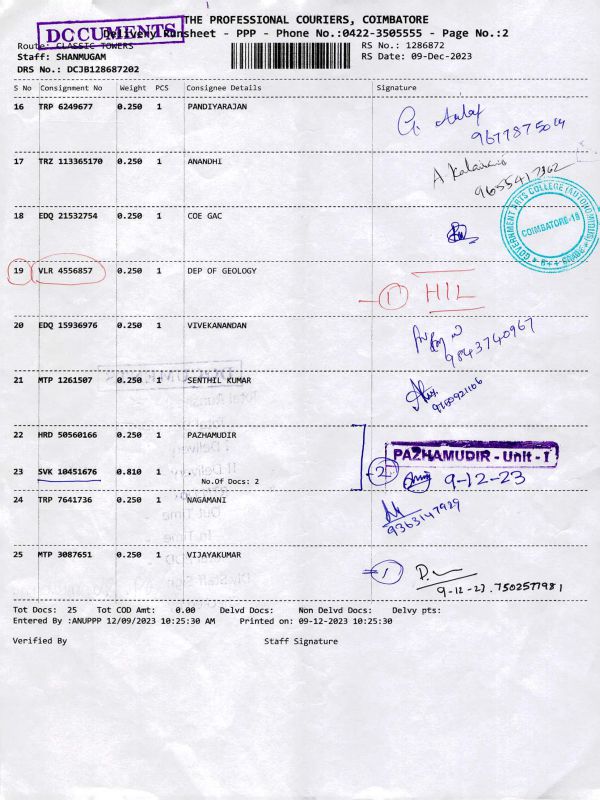 THE PROFESSIONAL COURIERS, COIMBATORE
DCCUMENTS
Delivery Runsheet - PPP - Phone No.:0422-3505555 - Page No.:2
Route: CLASSIC TOWERS
RS No.: 1286872
Staff: SHANMUGAM
RS Date: 09-Dec-2023
DRS No.: DCJB128687202
S No Consignment No Weight PCS Consignee Details Signature
16 TRP 6249677 0.250 1 PANDIYARAJAN
9677875014
17 TRZ 113365170 0.250 1 ANANDHI
9655417362
18 EDQ 21532754 0.250 1 COE GAC
GOVERNMENT ARTS COLLEGE (AUTONOMOUS)
COIMBATORE-18
19 VLR 4556857 0.250 1 DEP OF GEOLOGY
1 HIL
20 EDQ 15936976 0.250 1 VIVEKANANDAN
9843740967
21 MTP 1261507 0.250 1 SENTHIL KUMAR
22 HRD 50560166 0.250 1 PAZHAMUDIR
PAZHAMUDIR - Unit - I
23 SVK 10451676 0.810 1
No.Of Docs: 2
2 9-12-23
24 TRP 7641736 0.250 1 NAGAMANI
9363147929
25 MTP 3087651 0.250 1 VIJAYAKUMAR
1
9-12-23. 7502577981
Tot Docs: 25 Tot COD Amt: 0.00 Delvd Docs: Non Delvd Docs: Delvy pts:
Entered By :ANUPPP 12/09/2023 10:25:30 AM Printed on: 09-12-2023 10:25:30
Verified By Staff Signature